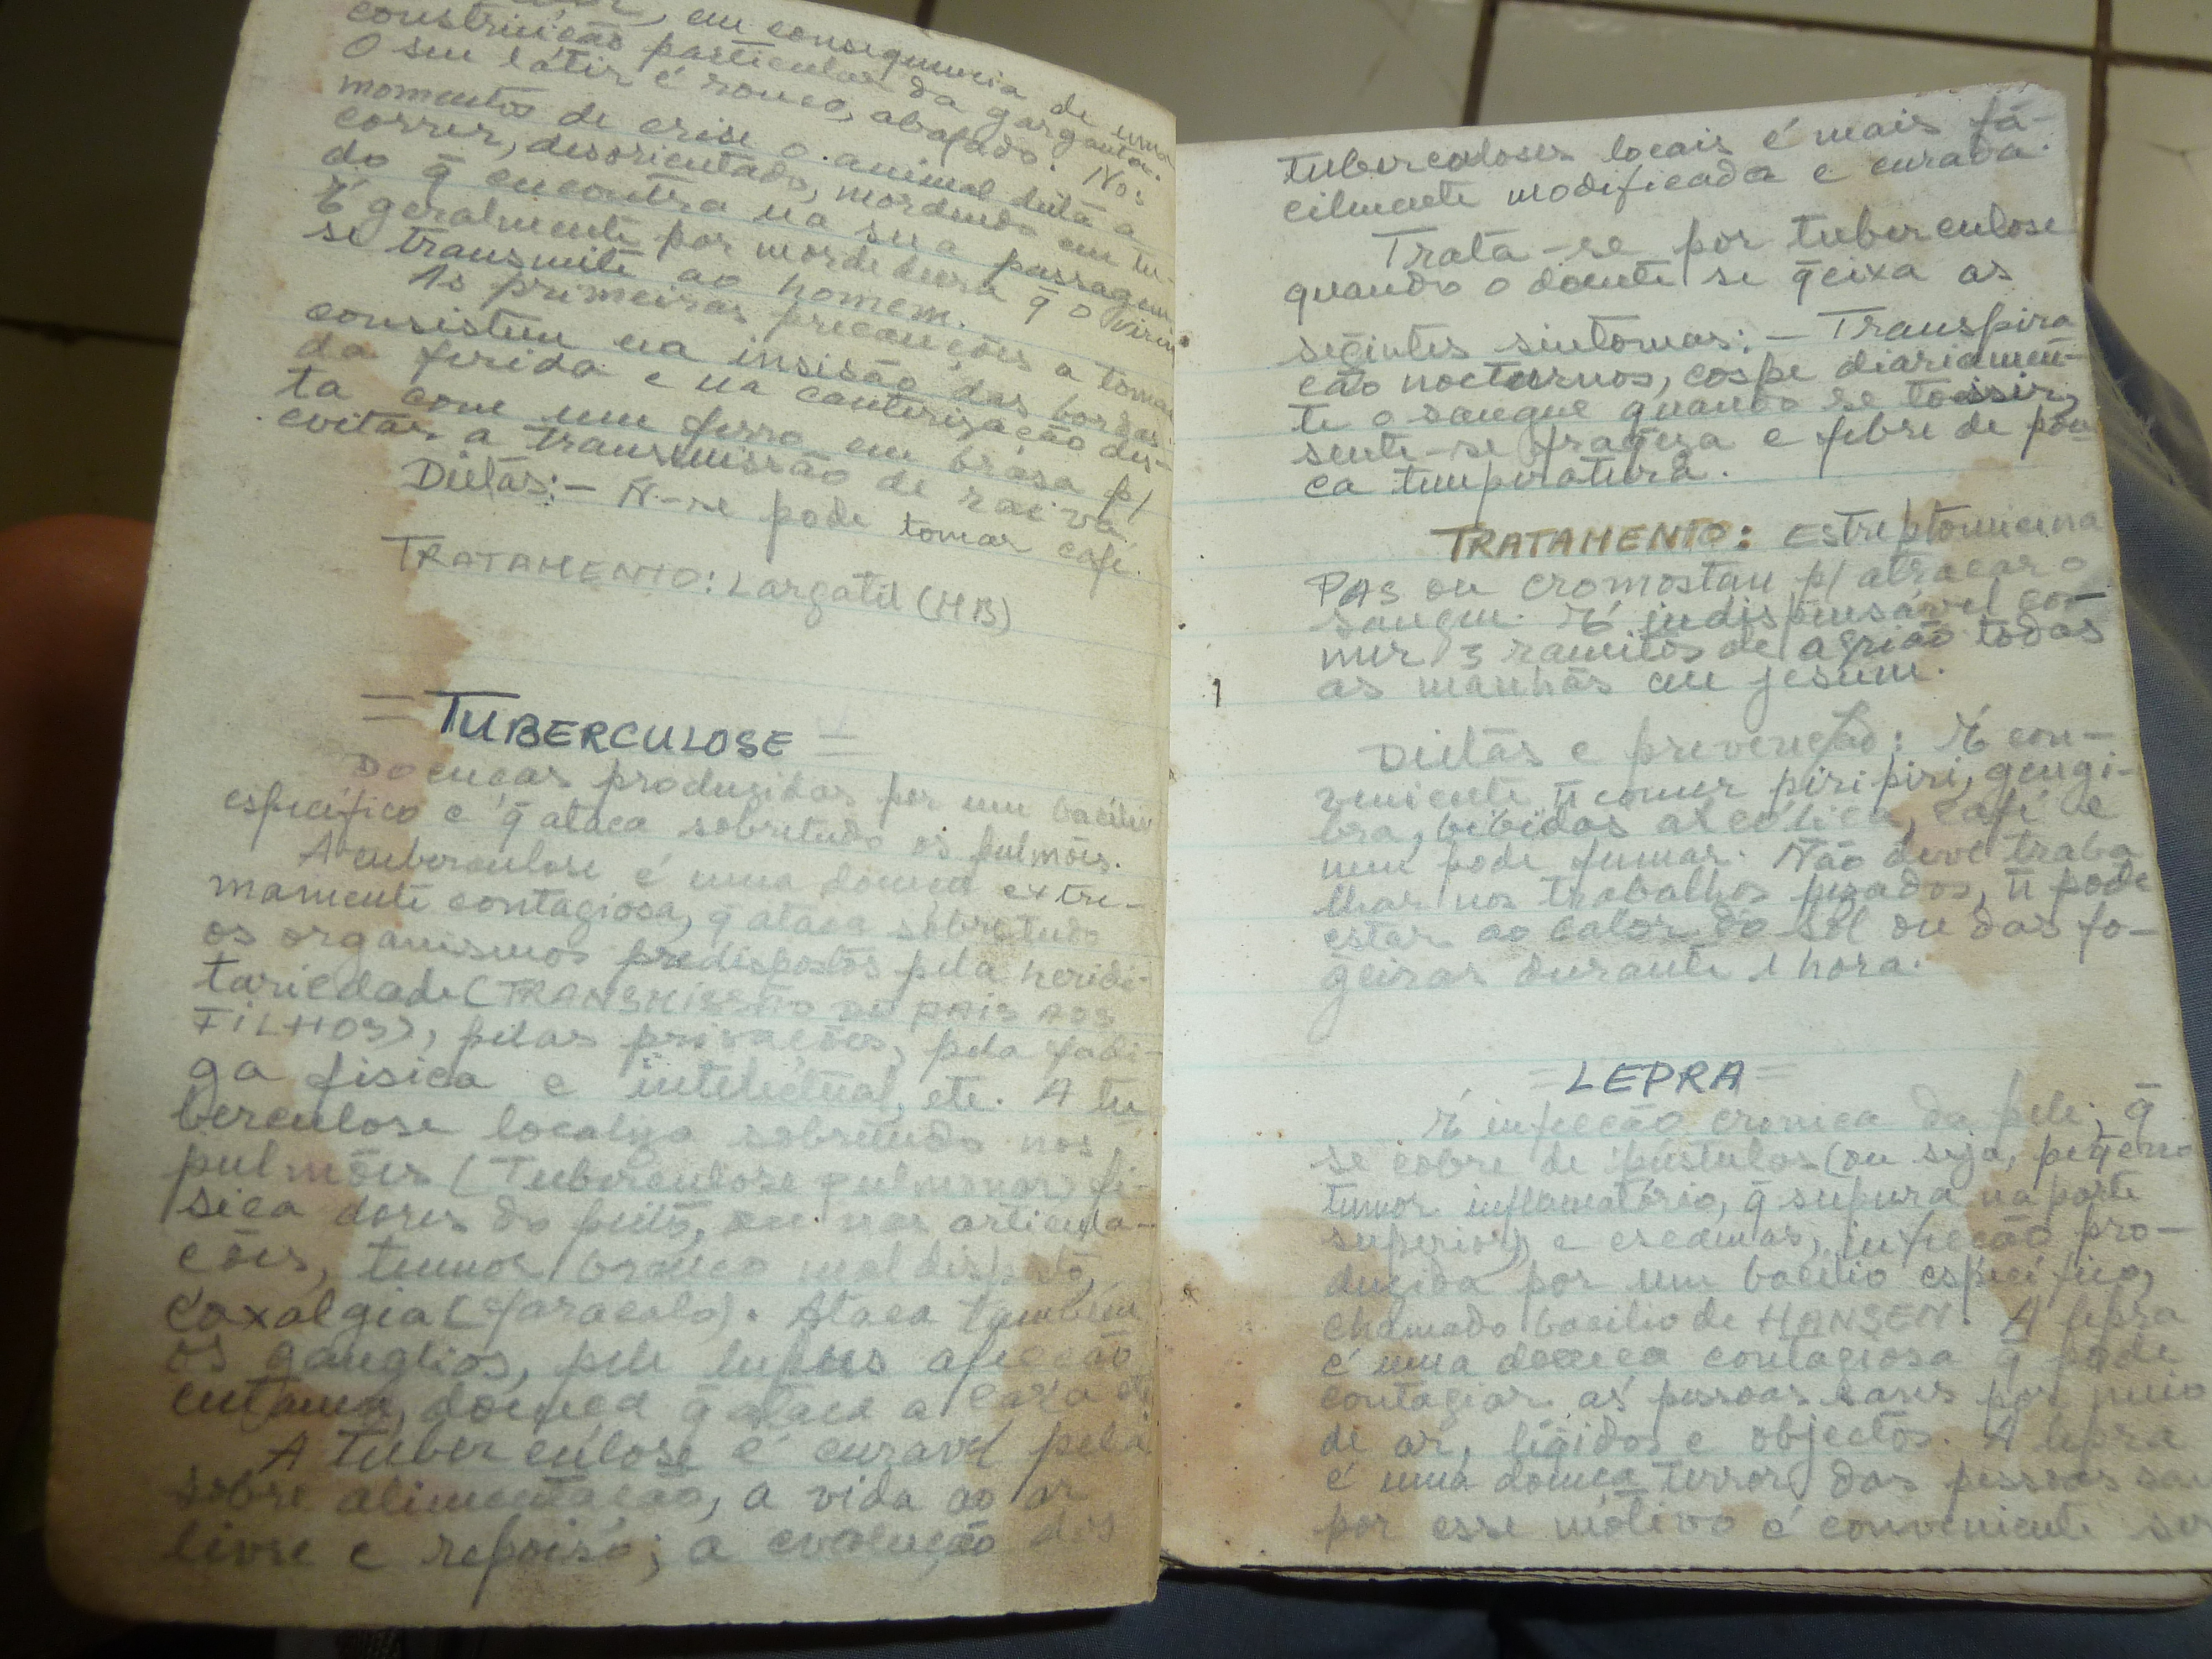 em consequencia de uma
construição particular da garganta.
O seu latir é rouco, abafado. Nos
momentos de crise o animal deita a
correr, desorientado, mordendo em tu-
do q̄ encontra na sua passagem
É geralmente por mordedura q̄ o virus
se transmite ao homem.
As primeiras precauções a tomar
consistem na insisão das bordas
da ferida e na cauterização des-
ta com um ferro em brasa p/
evitar a transmissão de raiva
Dietas:- Ñ-se pode tomar café.
TRATAMENTO: Largatil (HB)
= TUBERCULOSE =
Doenças produzidas por um bacilio
específico e q̄ ataca sobretudo os pulmões.
A tuberculose é uma doença extre-
mamente contagiosa, q̄ ataca sobretudo
os organismos predispostos pela heridi-
tariedade (TRANSMISSÃO DE PAIS AOS
FILHOS), pelas privações, pela fadi-
ga fisica e intelectual, etc. A tu
berculose localiza sobretudo nos
pulmões (Tuberculose pulmonar) fi-
sica dores do peito, ou nas articula-
ções, tumor branco mal disposto,
coxalgia (). Ataca também
os ganglios, pele lupus afecção
cutanea, doença q̄ ataca a cara etc
A tuberculose é curavel pela
sobre alimentação, a vida ao ar
livre e repoiso; a evolução das
tuberculoses locais é mais fá-
cilmente modificada e curada.
Trata-se por tuberculose
quando o doente se q̄eixa as
segintes sintomas:- Transpira
ção nocturnos, cospe diariamen-
te o sangue quando se tossir,
sente-se fraqeza e febre de pou
ca temperatura.
TRATAMENTO: Estreptomicina
PAS ou cromostan p/ atracar o
sangue. É indispensável co-
mer 3 ramitos de agrião todas
as manhãs em jesum.
Dietas e prevenção: É con-
veniente ñ comer piripiri, gengi-
bra, bibidas alcoólica, café e
nem pode fumar. Não deve traba
lhar nos trabalhos pezados, ñ pode
estar ao calor do sol ou das fo-
geiras durante 1 hora.
= LEPRA =
É infecção cronica da pele, q̄
se cobre de pústulas (ou seja, peq̄eno
tumor inflamatório, q̄ supura na parte
superior) e escamas, infecção pro-
duzida por um bacilio específico,
chamado bacilio de HANSEN. A lepra
é uma doença contagiosa q̄ pode
contagiar as pessoas sans por meio
de ar, líqidos e objectos. A lepra
é uma doença terror das pessoas
por esse motivo é conveniente